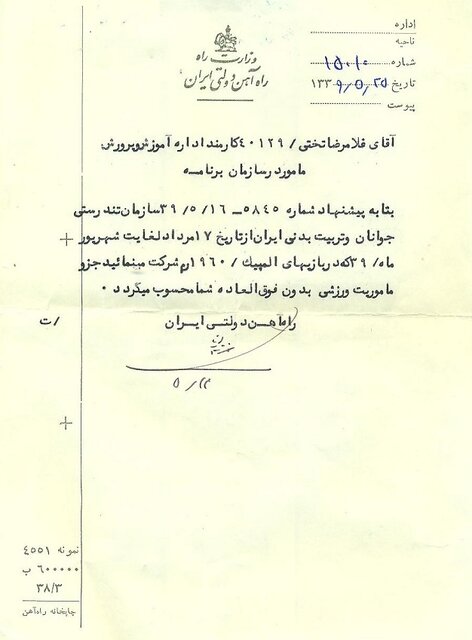 وزارت راه
راه آهن دولتی ایران
اداره
ناحیه
شماره ۱۵۰۱۰
تاریخ ۱۳۳۹/۵/۲۵
پیوست
آقای غلامرضا تختی / ۴۰۱۲۹ کارمند اداره آموزش و پرورش
مامور در سازمان برنامه
بنا به پیشنهاد شماره ۵۸۴۵ – ۳۹/۵/۱۶ سازمان تندرستی
جوانان و تربیت بدنی ایران از تاریخ ۱۷ مرداد لغایت شهریور
ماه/۳۹ که در بازیهای المپیک / ۱۹۶۰ رم شرکت مینمائید جزو
ماموریت ورزشی بدون فوق العاده شما محسوب میگردد ۰
راه آهن دولتی ایران
/ت
نمونه ۴۵۵۱
۶۰۰۰۰۰ ب
۳۸/۳
چاپخانه راه آهن